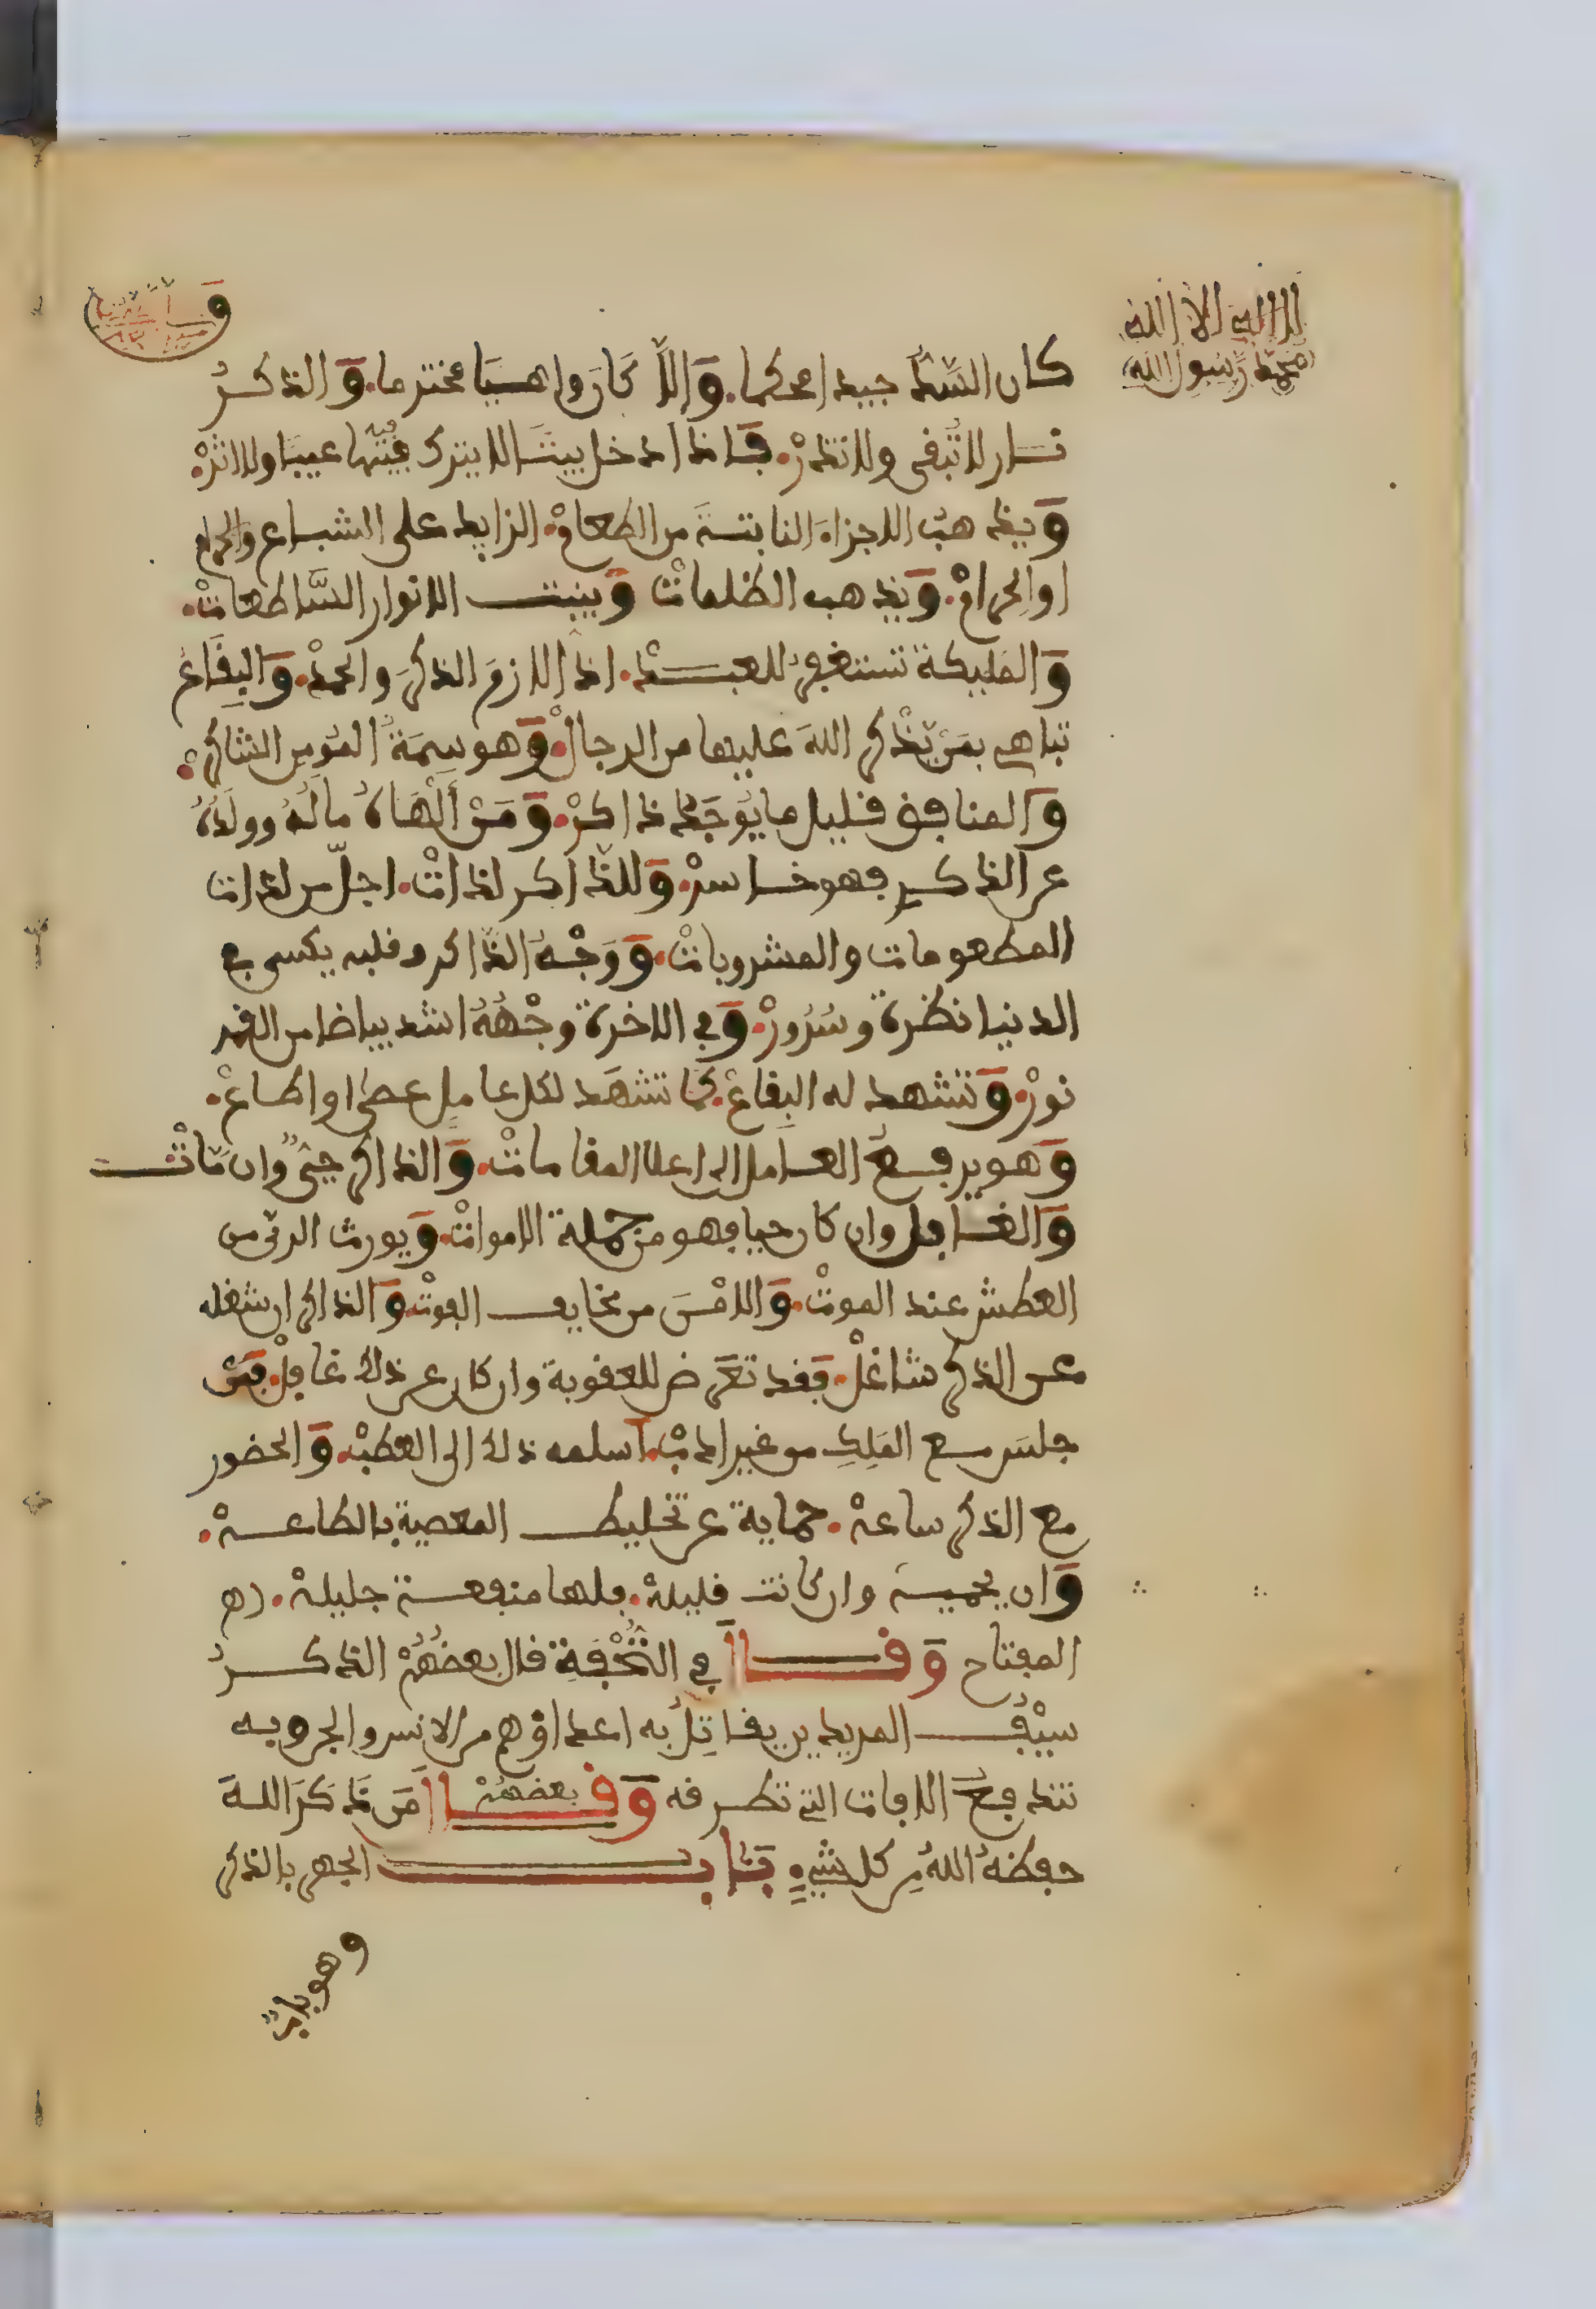 لا اله الا الله
محمد رسول الله
كان السّدّ جيدا محكما. وَالّا كَانَ واهيًا مخترما. وَالذكرُ
نار لا تُبقى ولا تذرْ. فَاذا دخل بيتا لا يترك فيه عيبا ولا اثرْ.
وَيذهبُ الاجزاءَ النابتةَ من الطعامْ. الزايد على الشباع
او الحرامْ. وَيذهب الظلماتْ وَينبت الانوار السَّاطعاتْ.
وَالمليكة تستغفرُ للعبدْ. اذا لازمَ الذكرَ والحمدْ. وَالبِقَاعُ
تباهى بمَنْ يَّذْكر اللهَ عليها من الرجالْ. وَهو سِمَةُ المُومِن الشاكرْ.
وَالمنافق قليل ما يُوجَد ذاكرْ. وَمَنْ أَلْهَاهُ مالُهُ وولَدُهُ
عن الذكرِ فهو خاسرْ. وَللذّاكر لذاتْ. اجلّ من لذات
المطعومات والمشروباتْ. وَوَجْهُ الذّاكر وقلبه يكسى في
الدنيا نظرة وسُرُورْ. وَفي الاخرة وجْهُهُ اشد بياضا من القمر
نورْ. وَتشهد له البِقاعْ. كما تشهَد لكل عامِل عصى او اطاعْ.
وَهو يرفعُ العامل الى اعلا المقاماتْ. وَالذاكر حيٌّ وان مّاتْ
وَالغافِل وان كان حيا فهو من جملة الامواتْ. وَيورث الرىّ من
العطش عند الموتْ. وَالامْنَ من مخايف الفوتْ. وَالذاكر ان شغله
عن الذكر شاغلْ. فَقد تعَرض للعقوبة وان كان عن ذلك غافِلْ. فمَنْ
جلسَ مع المَلِكِ من غير ادبْ. اَسلمه ذلك الى العطبْ. وَالحضور
مع الذكر ساعهْ. حماية عن تخليط المعصية بالطاعهْ.
وَان يحمية وان كانت قليلهْ. فلها منفعة جليلهْ. اه
المفتاح وَقَالَ في التُّحْفَةِ قال بعضُهُمْ الذكرُ
سيْفُ المريدين يقاتِلُ به اعداؤهم من الانس والجن وبه
تندفعُ الافات التى تطرقه وَقَالَ بعضهُمْ مَن ذَكَرَ اللهَ
حفظهُ اللهُ مِن كل شيءٍ بَابُ الجهر بالذكر
وهو بابٌ